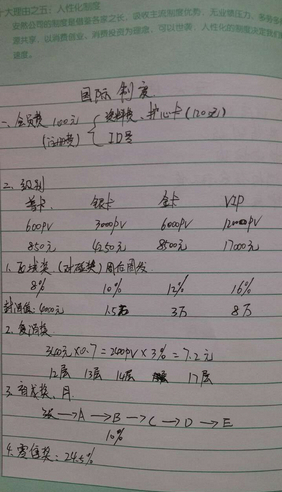 大理由之五：人性化制度
国际制度
一、会员费 100元 { 资料费、护心卡(120元)
(注册费) ID号
二、级别
普卡 银卡 金卡 VIP
600PV 3000PV 6000PV 12000PV
850元 4250元 8500元 17000元
1. 区域奖(对碰奖)周结周发
8% 10% 12% 16%
封顶值：4000元 1.5万 3万 8万
2. 复消奖
340元×0.7=240PV×3%=7.2元
12层 13层 14层 17层
3. 育成奖、月
→A→B→C→D→E
10%
4. 零售奖：24.5%